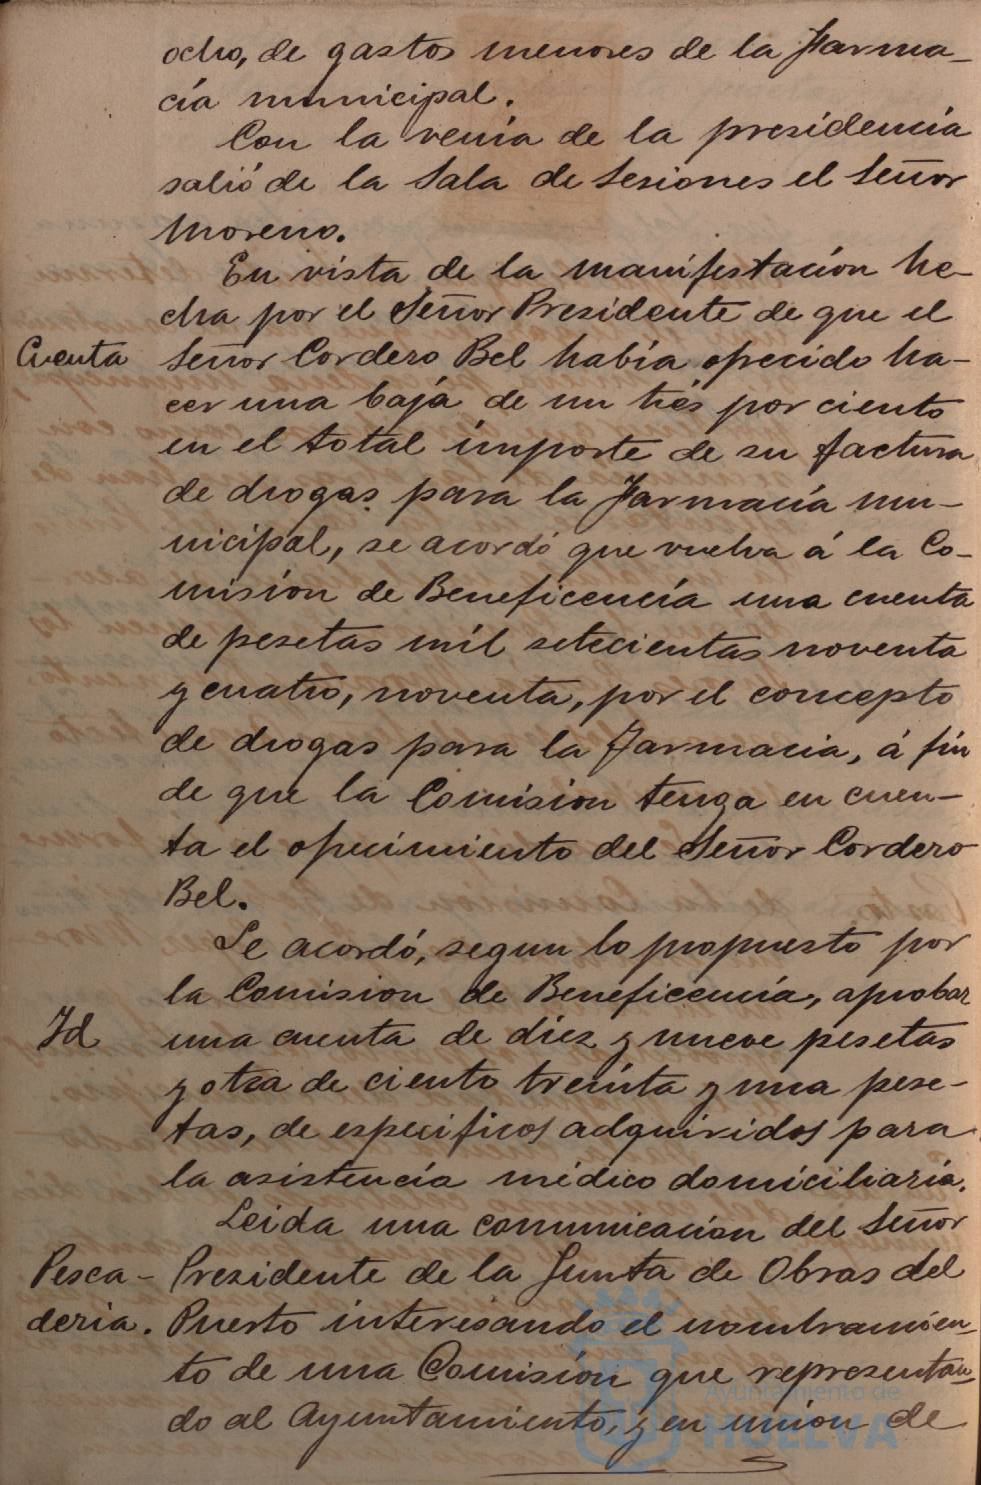 ocho, de gastos menores de la Farma-
cía municipal.
Con la venía de la presidencía
salió de la Sala de Sesiones el Señor
Moreno.
En vista de la manifestación he-
cha por el Señor Presidente de que el
Cuenta
Señor Cordero Bel había ofrecido ha-
cer una baja de un trés por ciento
en el total importe de su factura
de drogas para la Farmacía mu-
nicipal, se acordó que vuelva á la Co-
misión de Beneficencía una cuenta
de pesetas mil setecientas noventa
y cuatro, noventa, por el concepto
de drogas para la Farmacia, á fin
de que la Comisión tenga en cuen-
ta el ofrecimiento del Señor Cordero
Bel.
Se acordó, segun lo propuesto por
la Comision de Beneficencía, aprobar
Id
una cuenta de diez y nueve pesetas
y otra de ciento treinta y una pese-
tas, de especificos adquiridos para
la asistencía médico domiciliaria.
Leida una comunicación del Señor
Pesca-
Presidente de la Junta de Obras del
deria.
Puerto interesando el nombramien-
to de una Comisión que representan-
do al Ayuntamiento, y en union de
Ayuntamiento de
HUELVA